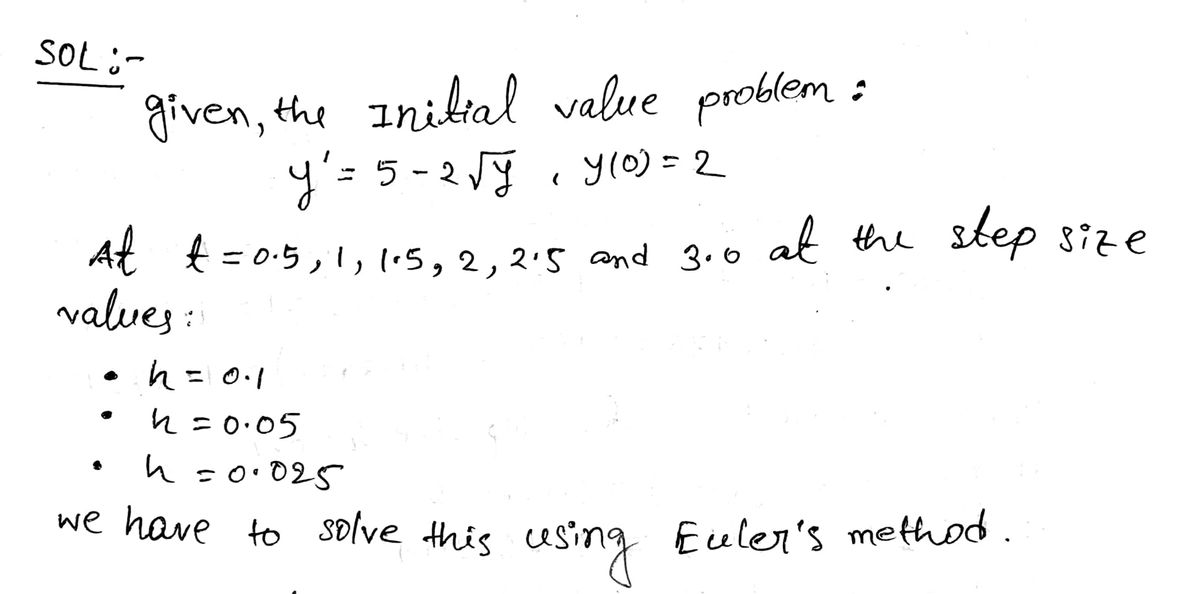 SOL :-
given, the Initial value problem :
y' = 5 - 2√y , y(0) = 2
At t = 0.5, 1, 1.5, 2, 2.5 and 3.0 at the step size
values :
• h = 0.1
• h = 0.05
• h = 0.025
we have to solve this using Euler's method.